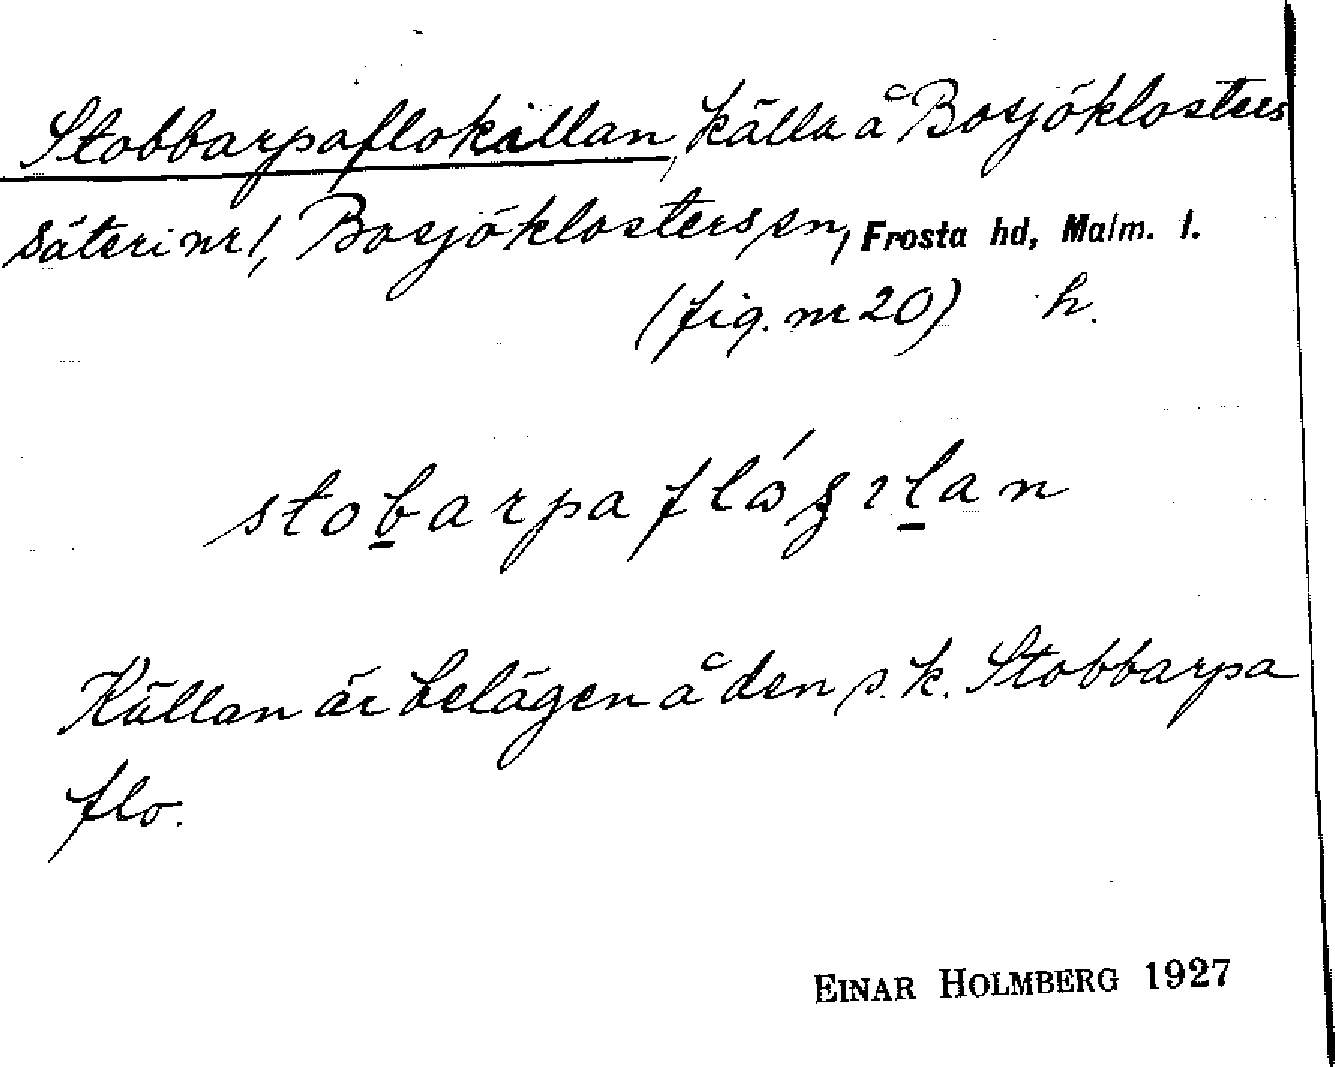 Stobbarpaflokällan, källa å Bosjöklosters
säteri nr 1, Bosjöklosters sn, Frosta hd, Malm. l.
(fig. nr 20) h.
Källan är belägen å den s.k. Stobbarpa
flo.
EINAR HOLMBERG 1927